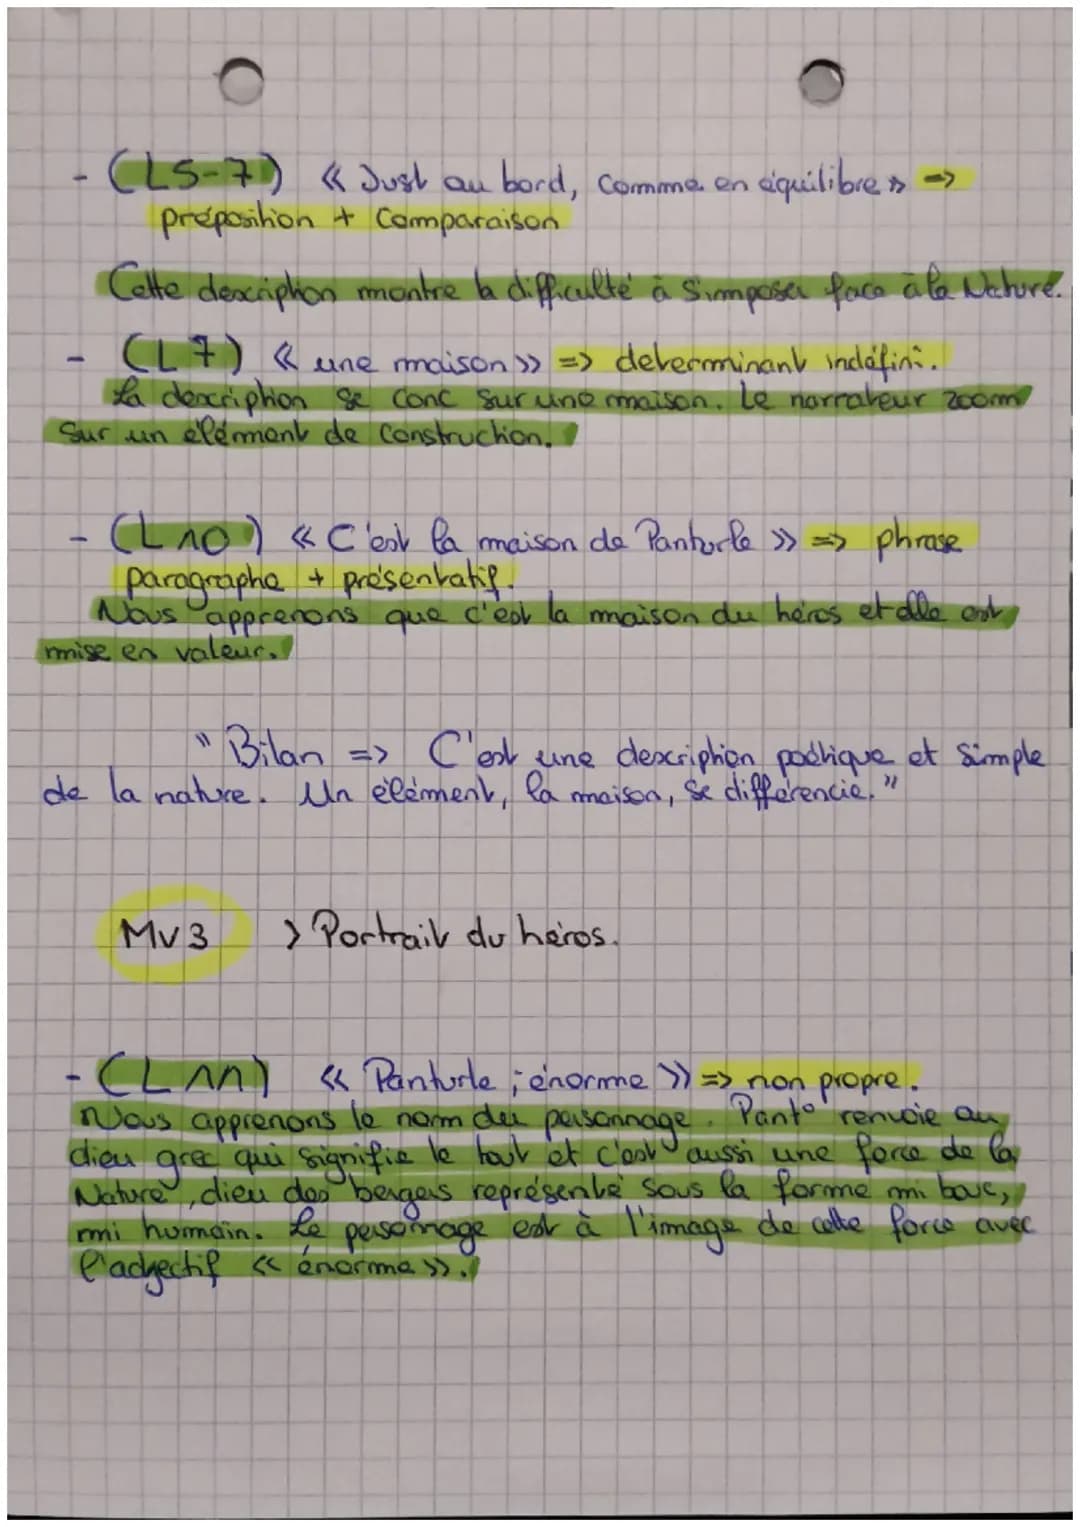 - (L5-7) « Just au bord, comme en équilibre » =>
préposition + Comparaison
Cette description montre la difficulté à s'imposer face à la Nature.
- (L7) « une maison » => determinant indéfini.
La description se conc sur une maison. Le narrateur zoom
sur un élément de construction.
- (L10) « C'est la maison de Panturle » => phrase
paragraphe + présentatif.
Nous apprenons que c'est la maison du héros et elle est
mise en valeur.
" Bilan => C'est une description poétique et simple
de la nature. Un élément, la maison, se différencie. "
Mv3 > Portrait du héros.
- (L11) « Panturle ; énorme » => non propre.
Nous apprenons le nom du personnage. Pant° renvoie au
dieu grec qui signifie le tout et c'est aussi une force de la
Nature, dieu des bergers représenté sous la forme mi bouc,
mi humain. Le personnage est à l'image de cette force avec
l'adjectif « énorme ».